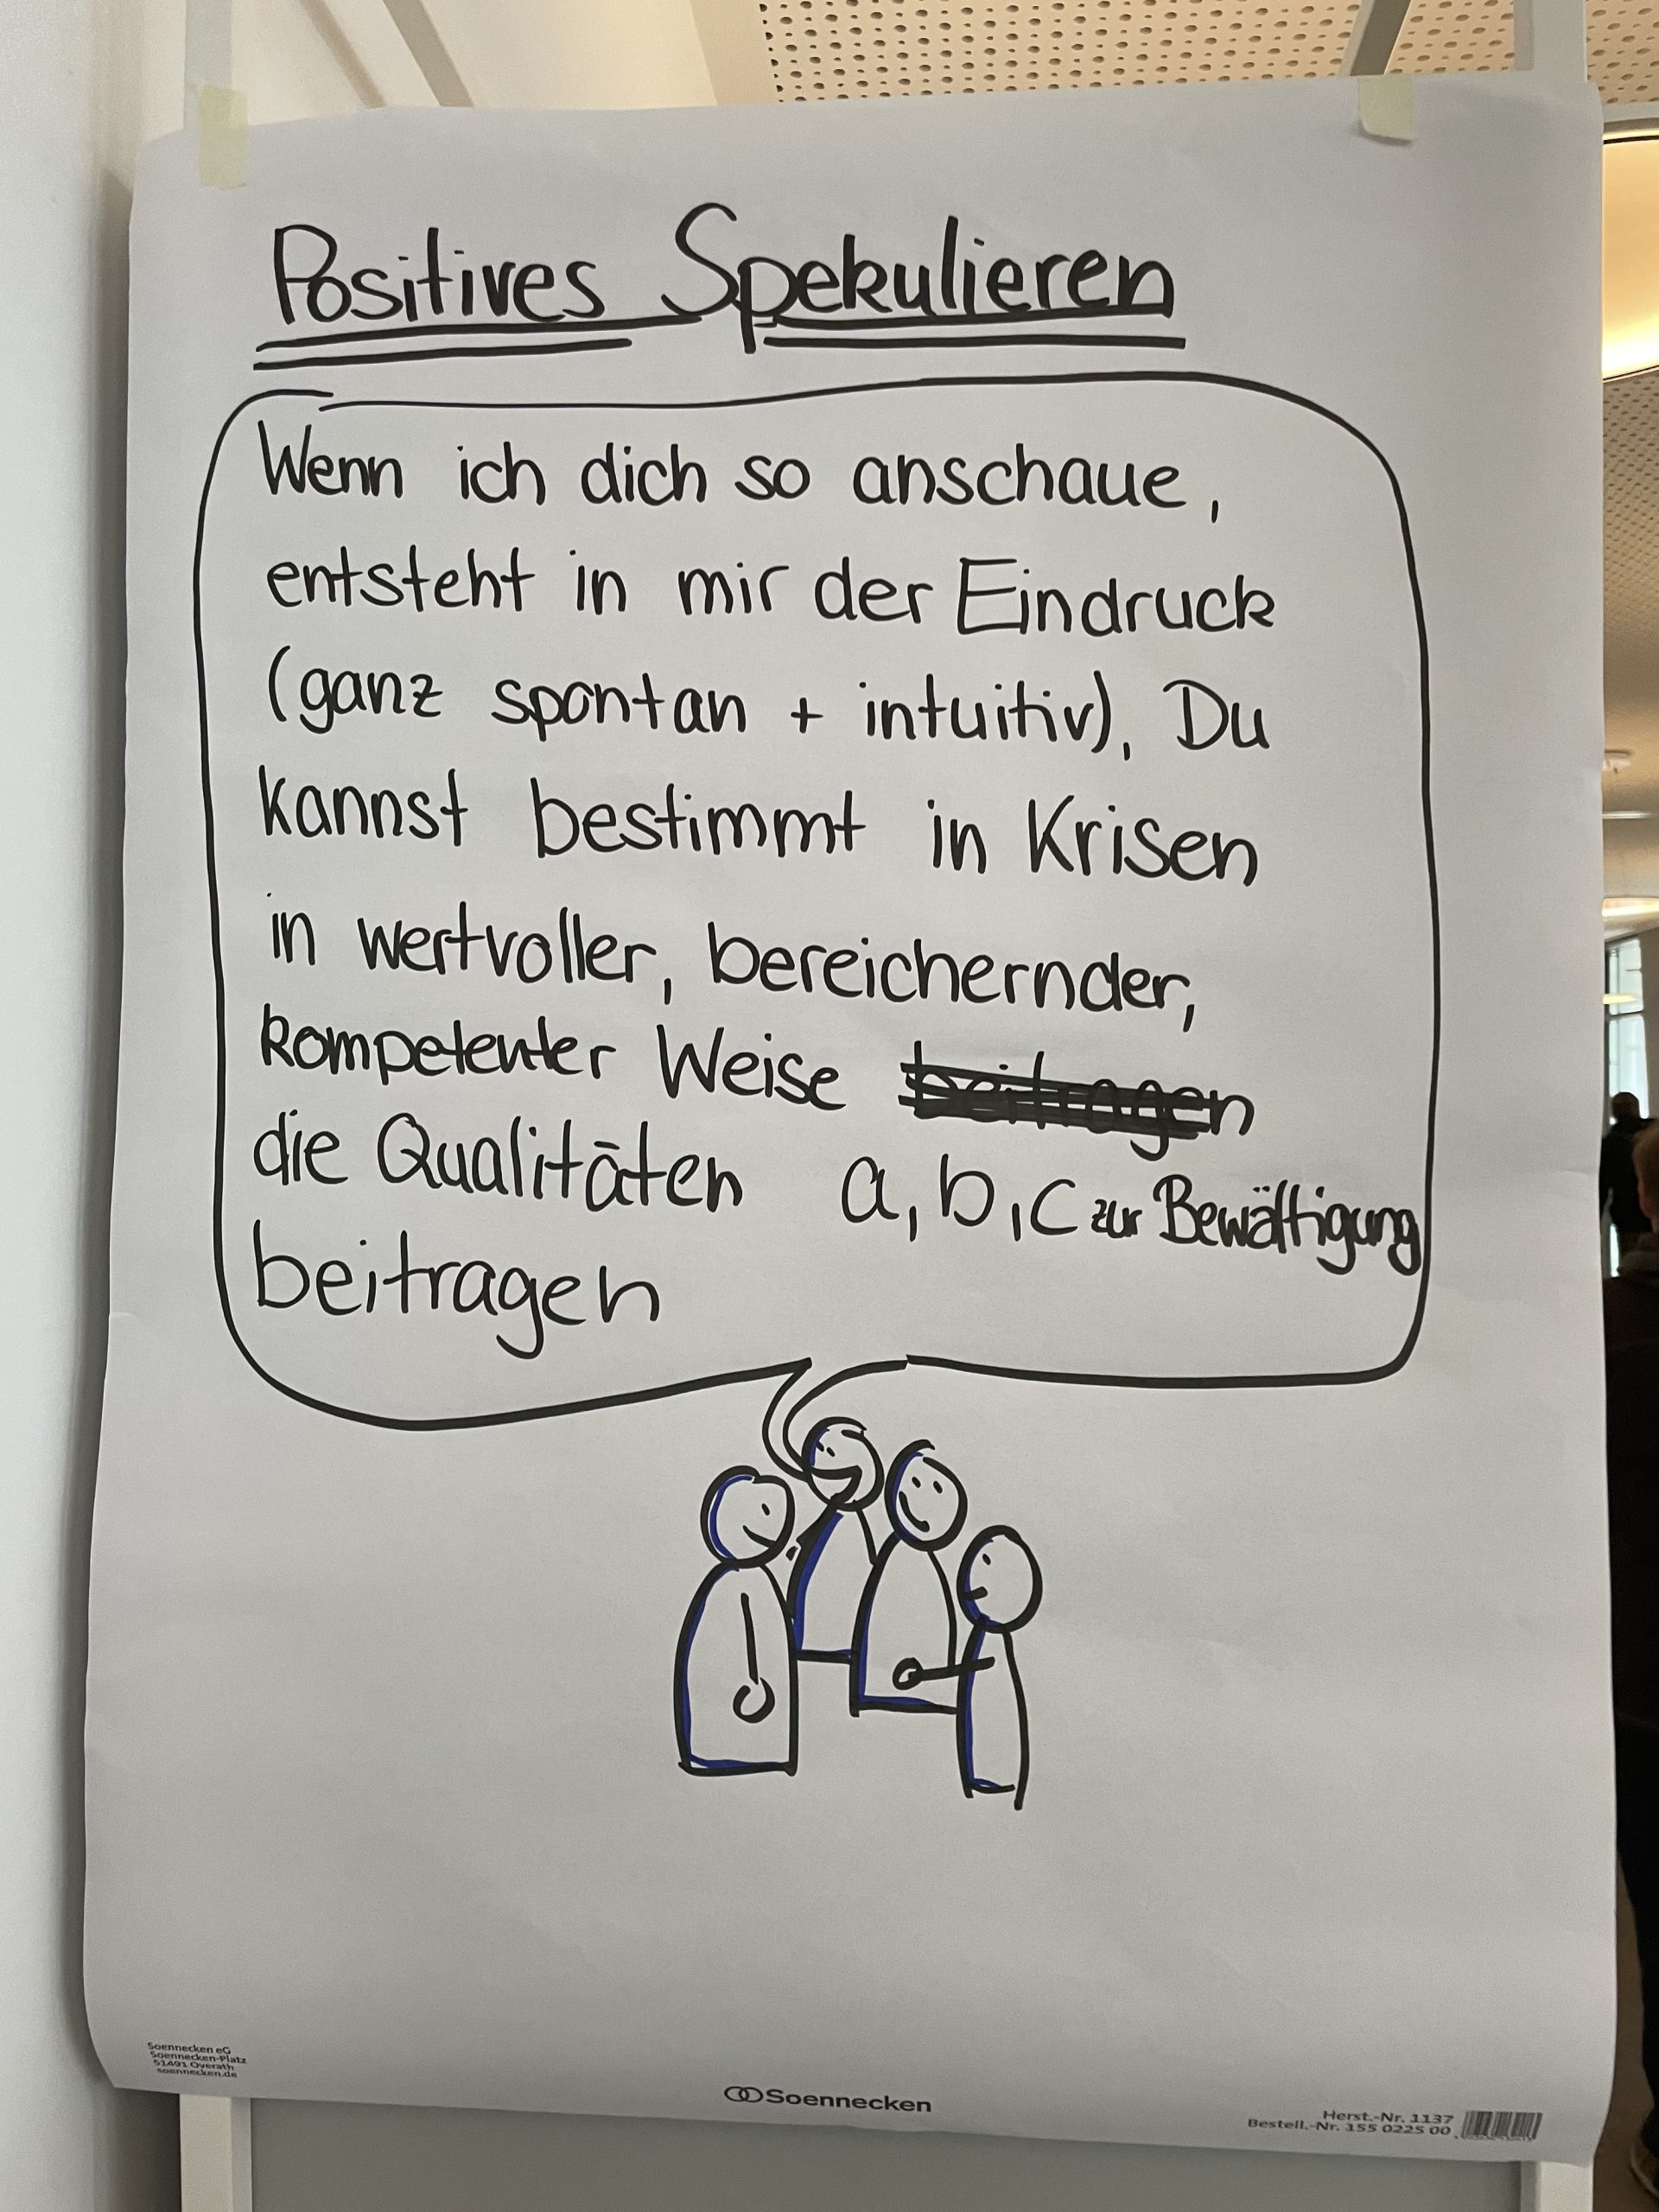 Positives Spekulieren
Wenn ich dich so anschaue,
entsteht in mir der Eindruck
(ganz spontan + intuitiv), Du
kannst bestimmt in Krisen
in wertvoller, bereichernder,
kompetenter Weise beitragen
die Qualitäten a, b, c zur Bewältigung
beitragen
Soennecken eG
Soennecken-Platz
51491 Overath
soennecken.de
Soennecken
Herst.-Nr. 1137
Bestell.-Nr. 155 0225 00